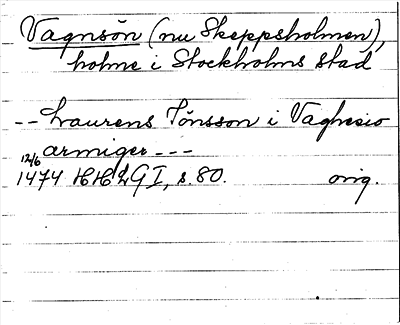 Vagnsön (nu Skeppsholmen),
holme i Stockholms stad
-- Laurens Jönsson i Vaghnsio
armiger ---
12/6
1474 HH LG I, s. 80. orig.